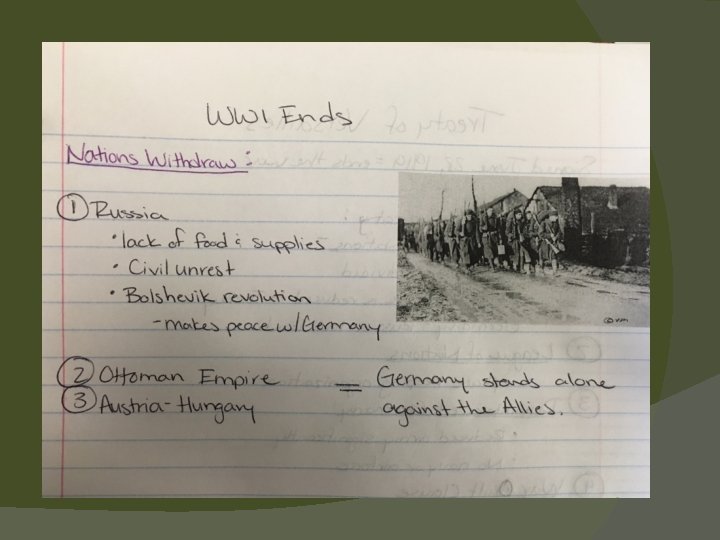 WWI Ends
Nations Withdraw:
① Russia
• lack of food & supplies
• Civil unrest
• Bolshevik revolution
- makes peace w/Germany
② Ottoman Empire = Germany stands alone
③ Austria-Hungary against the Allies.